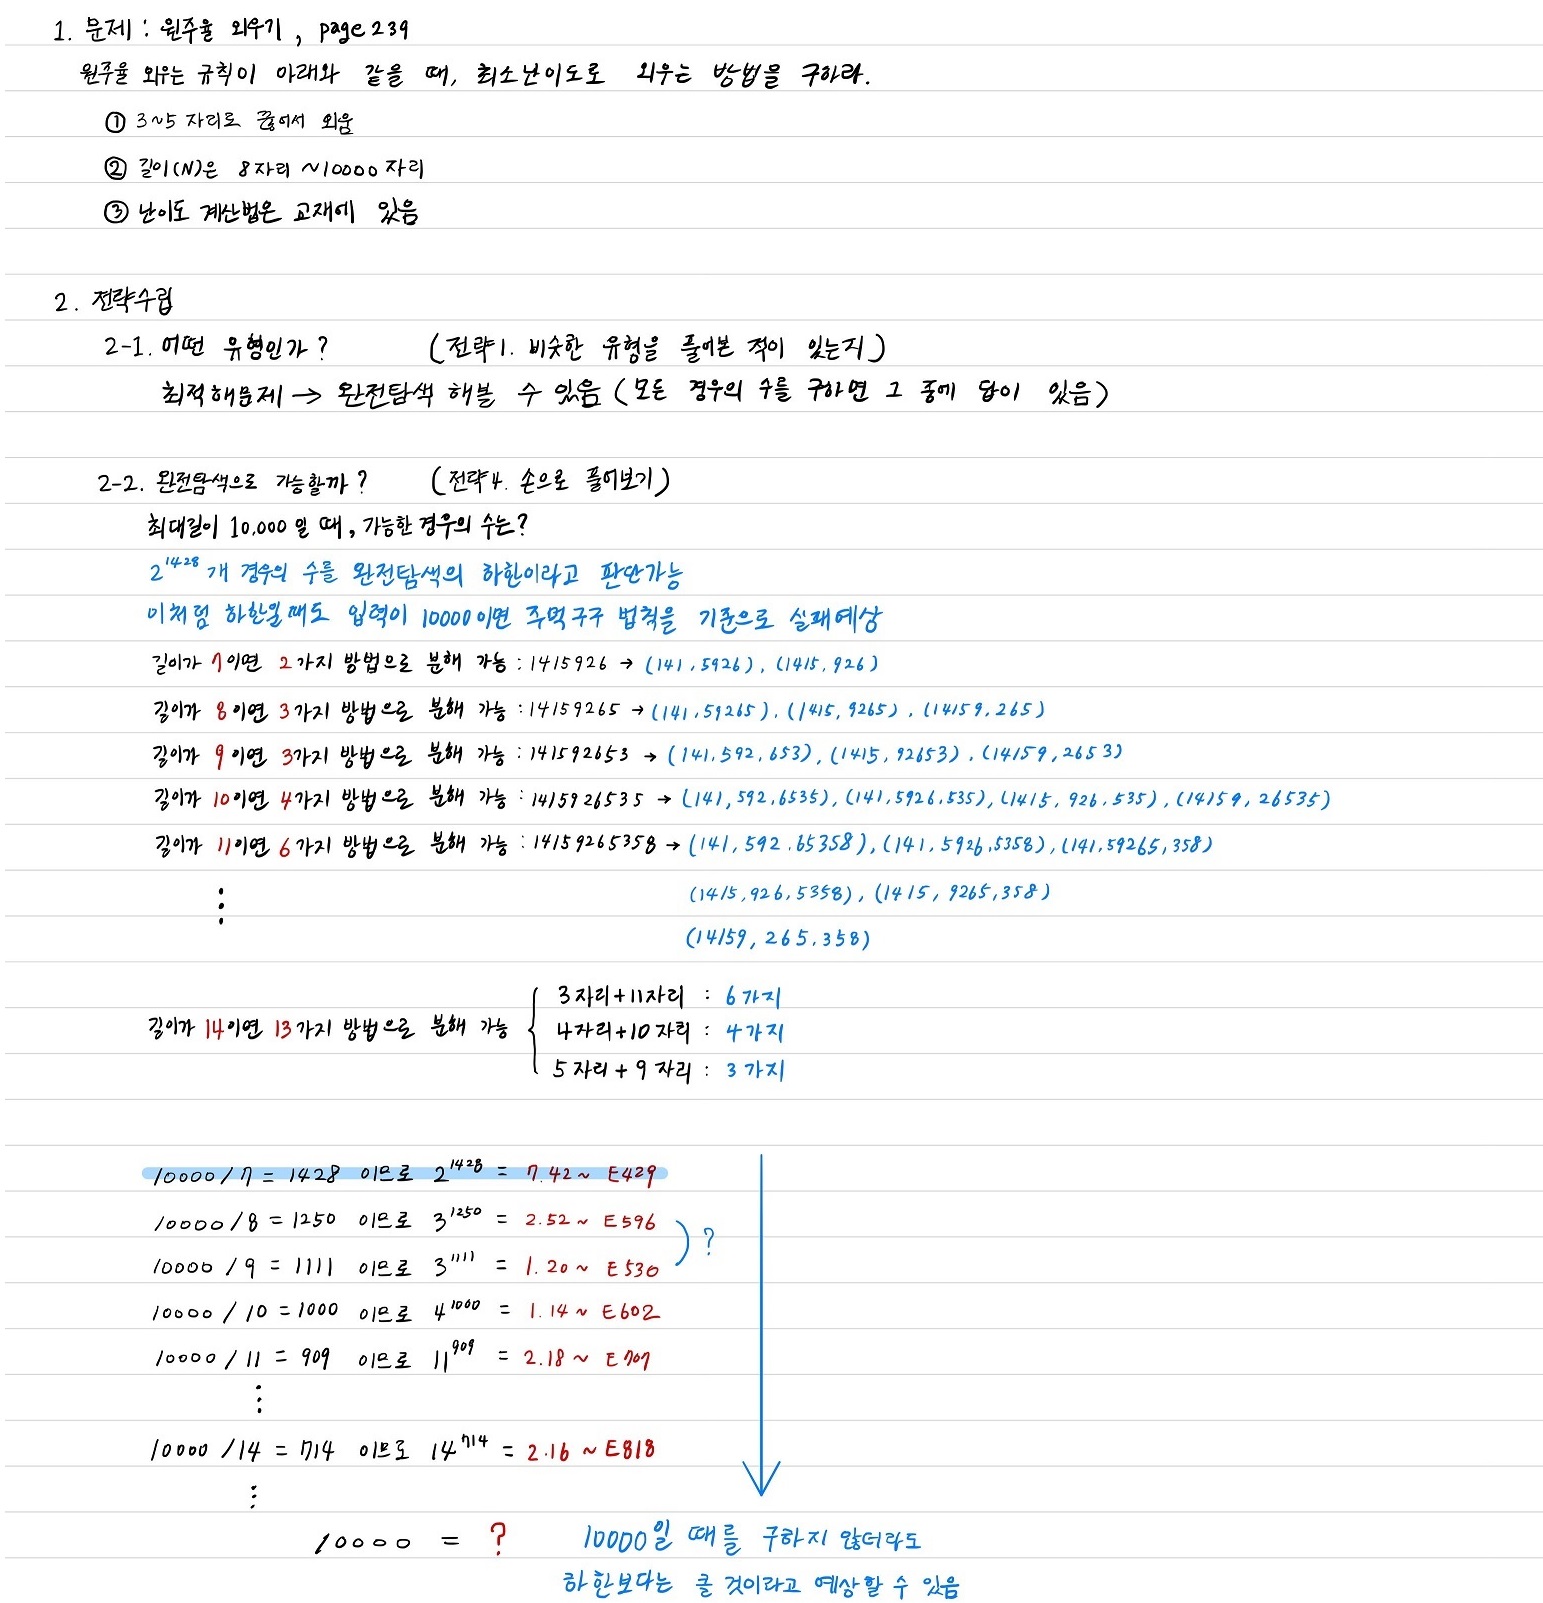 1. 문제 : 원주율 외우기, page 239
원주율 외우는 규칙이 아래와 같을 때, 최소난이도로 외우는 방법을 구하라.
① 3~5 자리로 끊어서 외움
② 길이(N)은 8자리 ~10000 자리
③ 난이도 계산법은 교재에 있음
2. 전략수립
2-1. 어떤 유형인가? (전략1. 비슷한 유형을 풀어본 적이 있는지)
최적해문제 → 완전탐색 해볼 수 있음 (모든 경우의 수를 구하면 그 중에 답이 있음)
2-2. 완전탐색으로 가능할까? (전략4. 손으로 풀어보기)
최대길이 10,000 일 때, 가능한 경우의 수는?
2^1428 개 경우의 수를 완전탐색의 하한이라고 판단가능
이처럼 하한일때도 입력이 10000이면 주먹구구 법칙을 기준으로 실패예상
길이가 7이면 2가지 방법으로 분해 가능 : 1415926 → (141, 5926), (1415, 926)
길이가 8이면 3가지 방법으로 분해 가능 : 14159265 → (141, 59265), (1415, 9265), (14159, 265)
길이가 9이면 3가지 방법으로 분해 가능 : 141592653 → (141, 592, 653), (1415, 92653), (14159, 2653)
길이가 10이면 4가지 방법으로 분해 가능 : 1415926535 → (141, 592, 6535), (141, 5926, 535), (1415, 926, 535), (14159, 26535)
길이가 11이면 6가지 방법으로 분해 가능 : 14159265358 → (141, 592, 65358), (141, 5926, 5358), (141, 59265, 358)
(1415, 926, 5358), (1415, 9265, 358)
(14159, 265, 358)
3자리+11자리 : 6가지
길이가 14이면 13가지 방법으로 분해 가능 4자리+10자리 : 4가지
5자리+9자리 : 3가지
10000/7 = 1428 이므로 2^1428 = 7.42~ E429
10000/8 = 1250 이므로 3^1250 = 2.52~ E596
) ?
10000/9 = 1111 이므로 3^1111 = 1.20~ E530
10000/10 = 1000 이므로 4^1000 = 1.14~ E602
10000/11 = 909 이므로 11^909 = 2.18~ E707
10000/14 = 714 이므로 14^714 = 2.16~ E818
10000 = ? 10000일 때를 구하지 않더라도
하한보다는 클 것이라고 예상할 수 있음